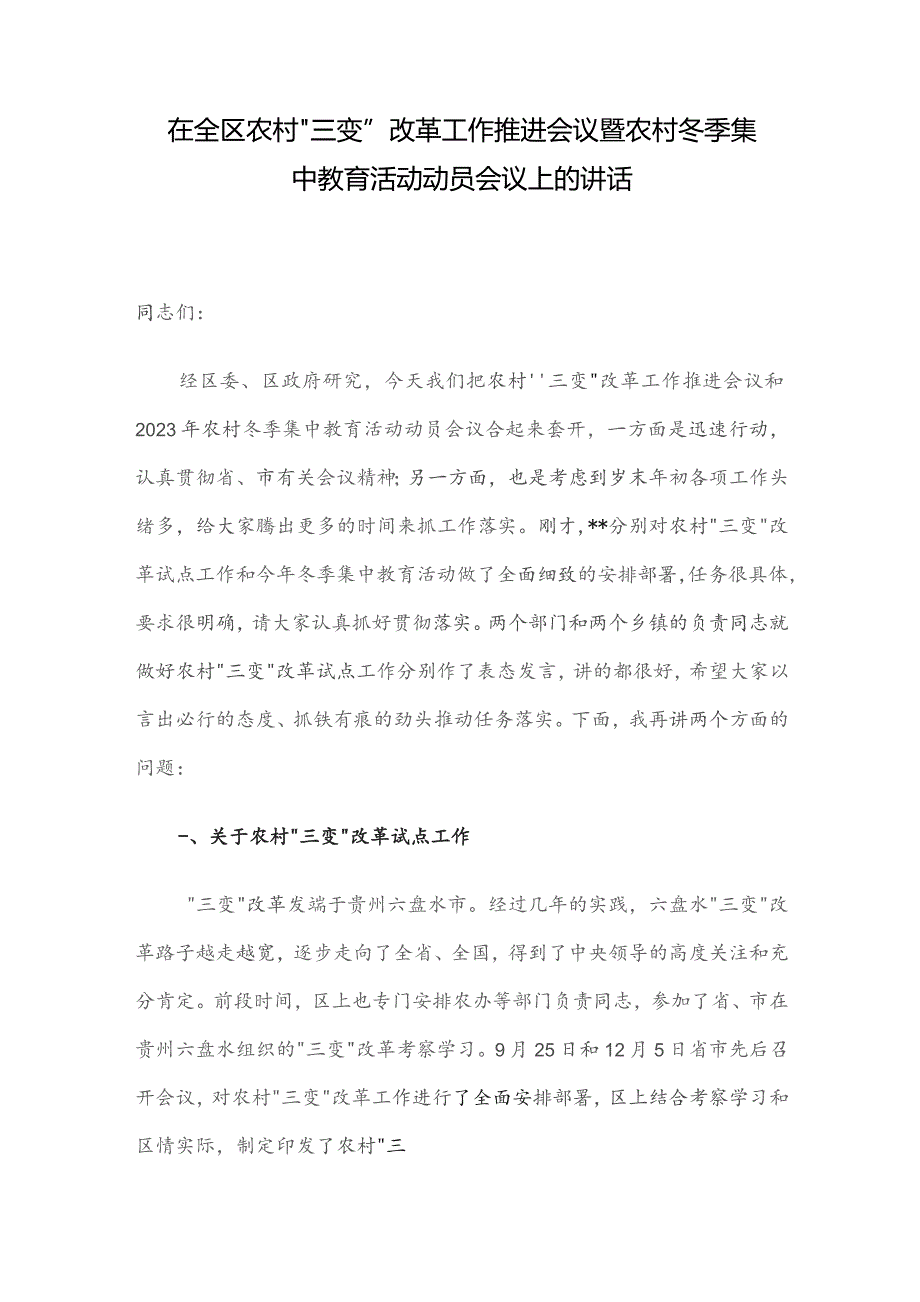 在全区农村"三变”改革工作推进会议暨农村冬季集
中教育活动动员会议上的讲话
同志们：
经区委、区政府研究，今天我们把农村''三变"改革工作推进会议和
2023年农村冬季集中教育活动动员会议合起来套开，一方面是迅速行动，
认真贯彻省、市有关会议精神；另一方面，也是考虑到岁末年初各项工作头
绪多，给大家腾出更多的时间来抓工作落实。刚才，**分别对农村"三变"改
革试点工作和今年冬季集中教育活动做了全面细致的安排部署，任务很具体，
要求很明确，请大家认真抓好贯彻落实。两个部门和两个乡镇的负责同志就
做好农村"三变"改革试点工作分别作了表态发言，讲的都很好，希望大家以
言出必行的态度、抓铁有痕的劲头推动任务落实。下面，我再讲两个方面的
问题：
-、关于农村"三变"改革试点工作
"三变"改革发端于贵州六盘水市。经过几年的实践，六盘水"三变"改
革路子越走越宽，逐步走向了全省、全国，得到了中央领导的高度关注和充
分肯定。前段时间，区上也专门安排农办等部门负责同志，参加了省、市在
贵州六盘水组织的"三变"改革考察学习。9月25日和12月5日省市先后召
开会议，对农村"三变"改革工作进行了全面安排部署，区上结合考察学习和
区情实际，制定印发了农村"三